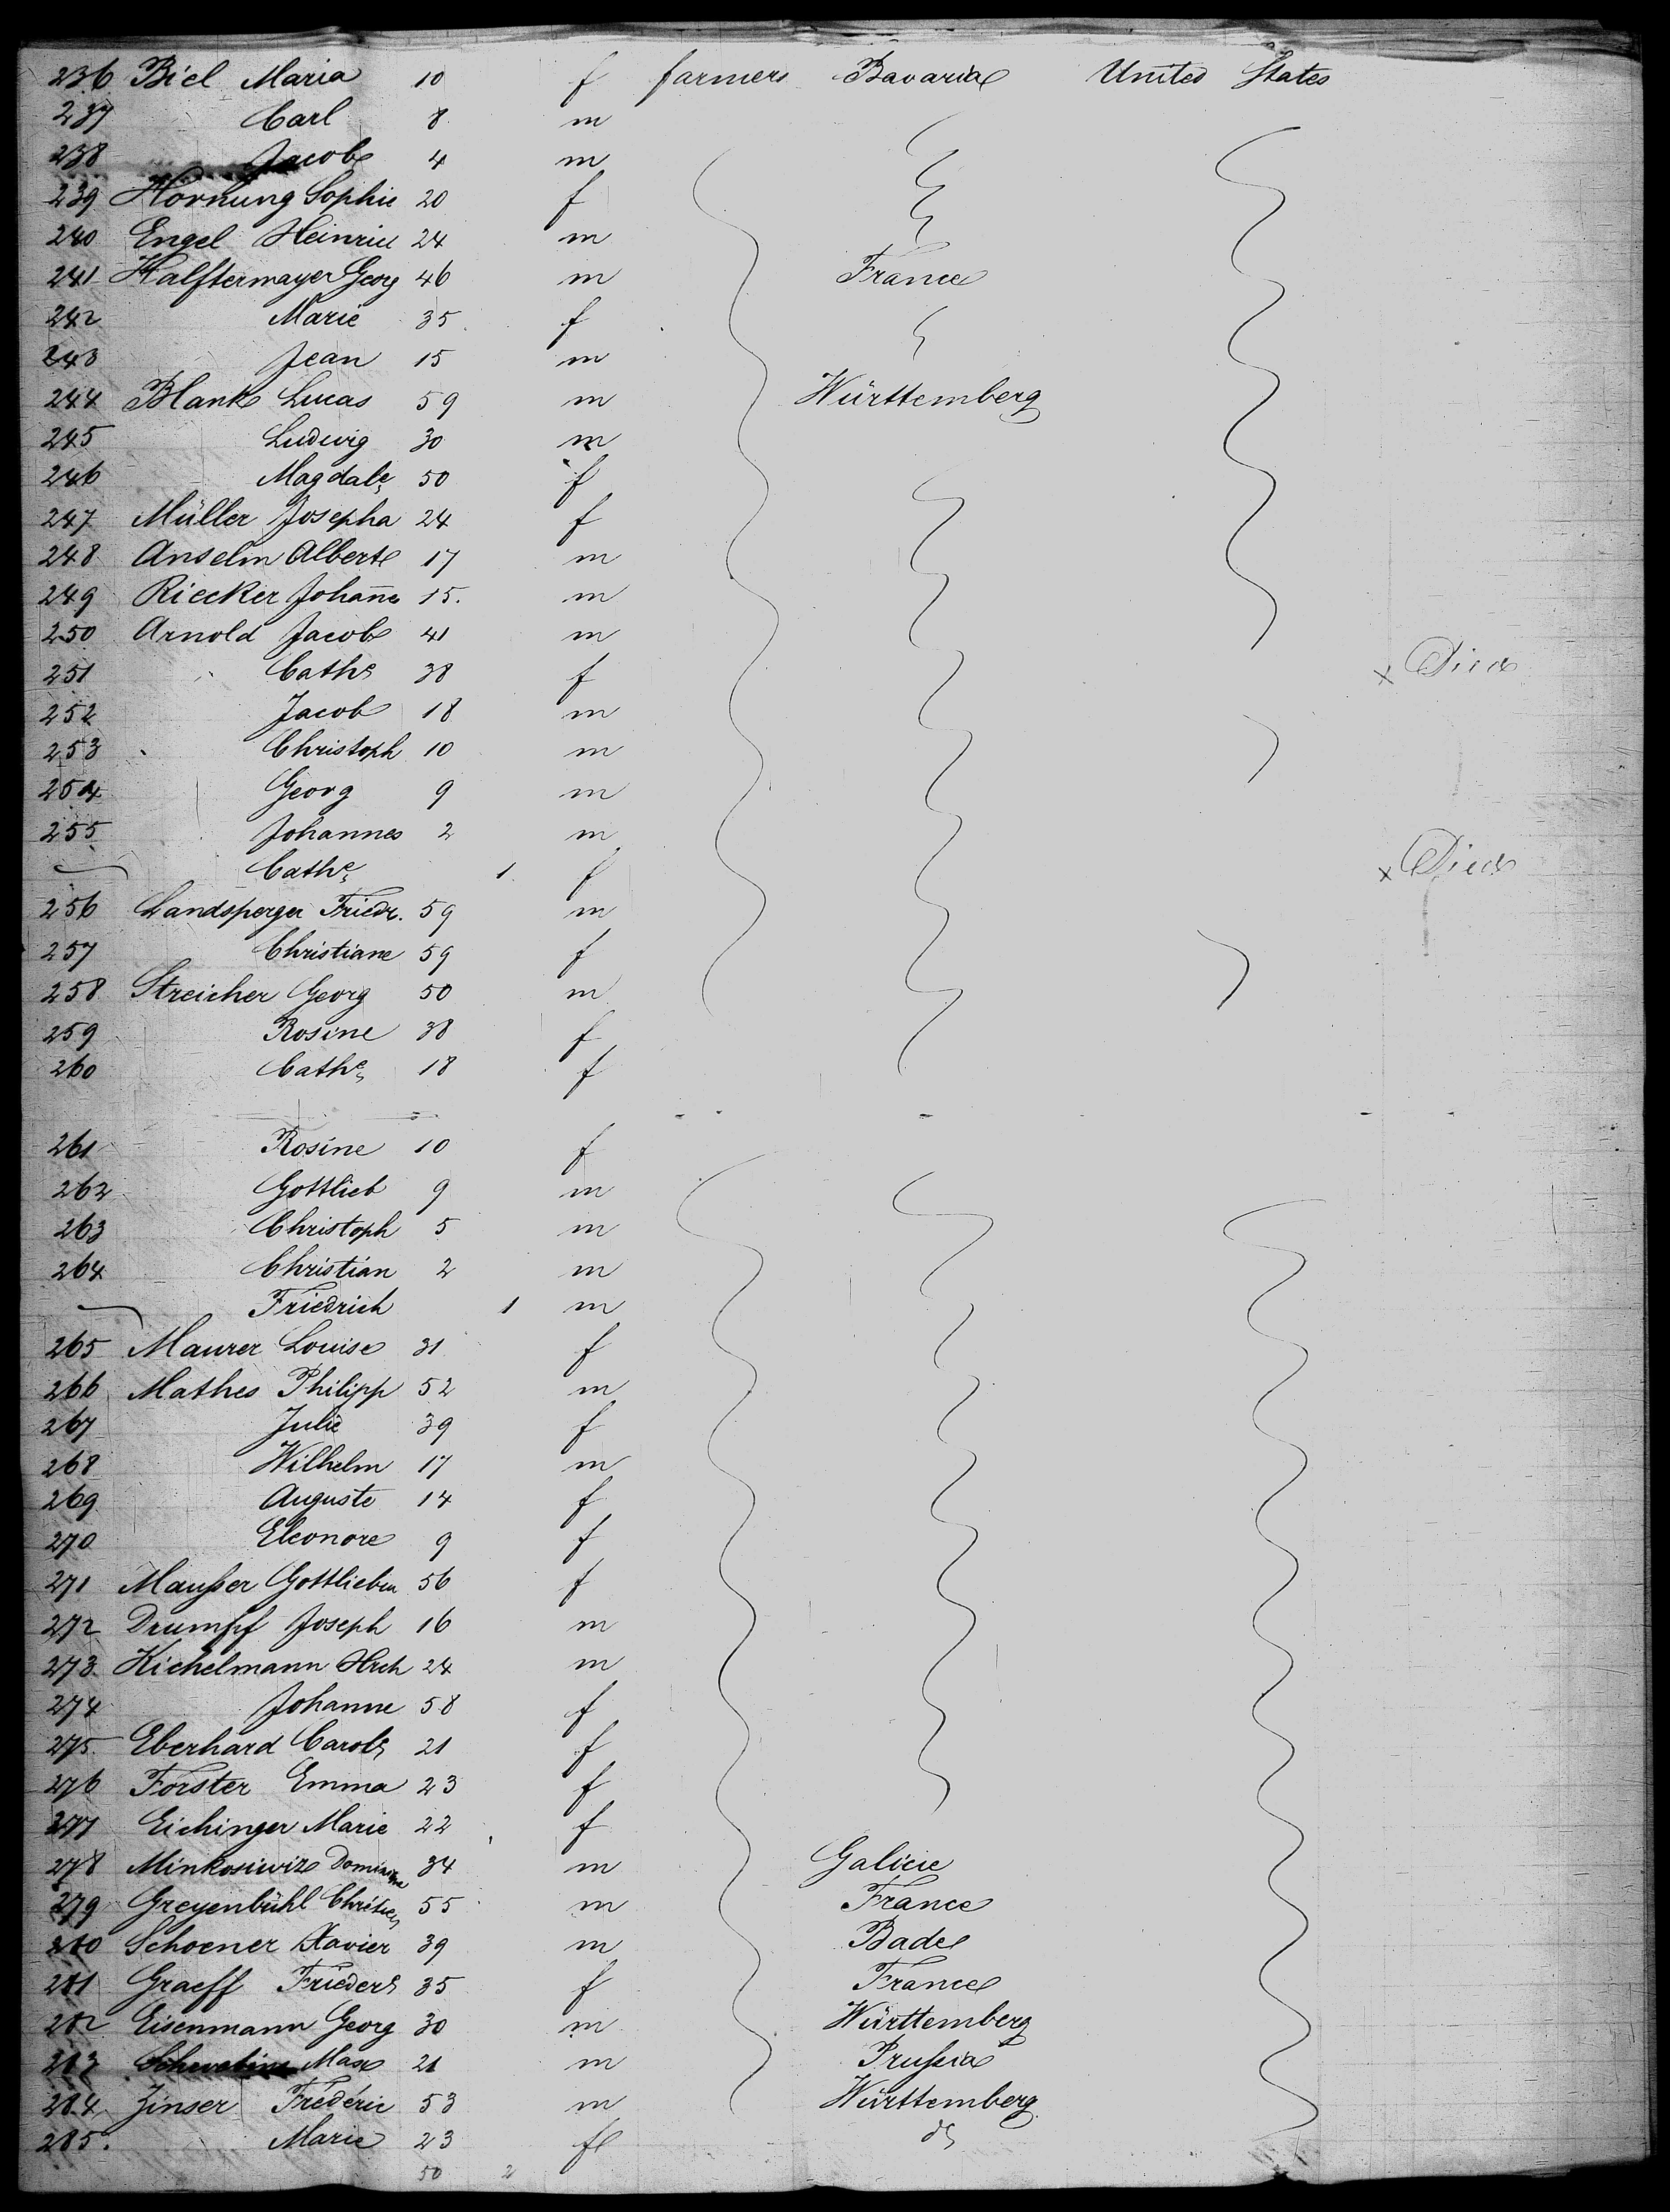 236 Biel Maria 10 f farmers Bavaria United States
237 Carl 8 m
238 Jacob 4 m
239 Hornung Sophie 20 f
240 Engel Heinrich 24 m
241 Halftermayer Georg 46 m France
242 Marie 35 f
243 Jean 15 m
244 Blank Lucas 59 m Württemberg
245 Ludwig 30 m
246 Magdale 50 f
247 Müller Josepha 24 f
248 Anselm Albert 17 m
249 Riecker Johann̄es 15. m
250 Arnold Jacob 41 m
251 Cathe 38 f x Died
252 Jacob 18 m
253 Christoph 10 m
254 Georg 9 m
255 Johannes 2 m
Cathe 1 f x Died
256 Landsperger Friedr. 59 m
257 Christiane 59 f
258 Streicher Georg 50 m
259 Rosine 38 f
260 Cathe 18 f
261 Rosine 10 f
262 Gottlieb 9 m
263 Christoph 5 m
264 Christian 2 m
Friedrich 1 m
265 Maurer Louise 31 f
266 Mathes Philipp 52 m
267 Julie 39 f
268 Wilhelm 17 m
269 Auguste 14 f
270 Eleonore 9 f
271 Maußer Gottliebin 56 f
272 Drumpf Joseph 16 m
273 Kichelmann Hrch 24 m
274 Johanne 58 f
275 Eberhard Carole 21 f
276 Forster Emma 23 f
277 Eichinger Marie 22 f
278 Minkosiwiz 34 m Galicie
279 Greyenbühl 55 m France
280 Schoener Xavier 39 m Bade
281 Graeff Friedere 35 f France
282 Eisenmann Georg 30 m Württemberg
283 Max 21 m Prußia
284 Zinser Frédéric 53 m Württemberg
285. Marie 23 f do
50 2